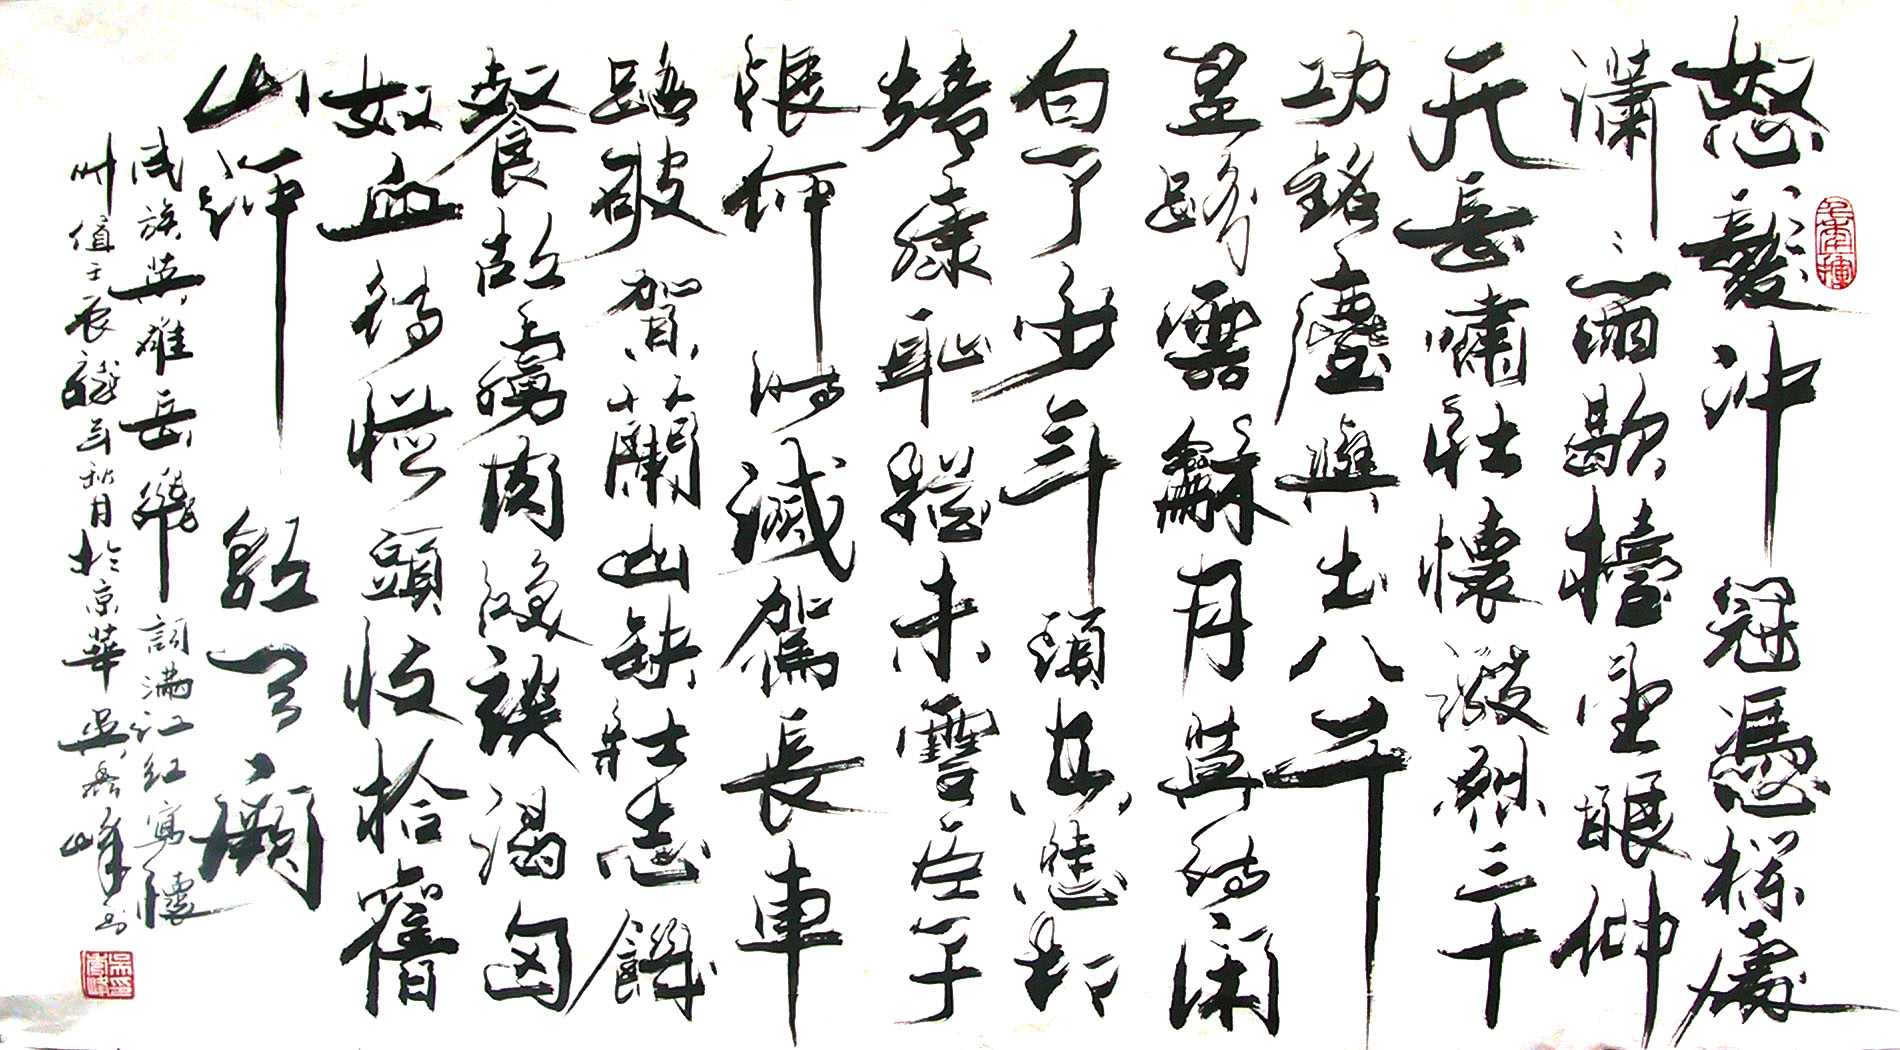 怒髮沖冠憑欄處
瀟瀟雨歇檯望眼仰
天長嘯壯懷激烈三十
功銘塵與土八千
里路雲龢月莫待閑
白了少年頭空悲切
靖康恥猶未雪臣子
恨何時滅駕長車
踏破賀蘭山缺壯志飢
餐胡虜肉談渴匈
奴血待從頭收拾舊
山河朝天闕
民族英雄岳飛詞滿江紅寫懷
時值壬辰龍年秋月於京華吳秀峰書